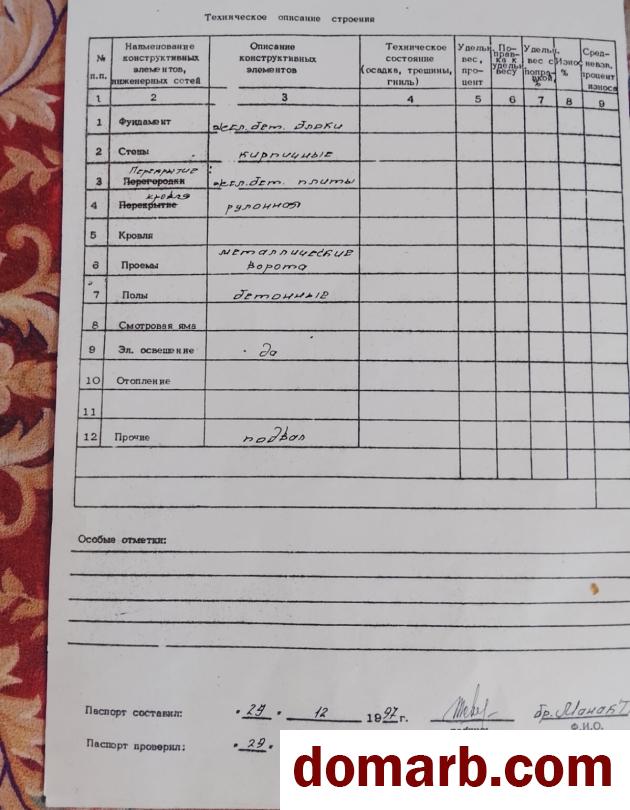 Техническое описание строения
№ п.п. Наименование конструктивных элементов, инженерных сетей Описание конструктивных элементов Техническое состояние (осадка, трещины, гниль) Удельн. вес, процент Поправка к удельн. весу Удельн. вес с поправкой, % Износ % Средневзв. процент износа
1 2 3 4 5 6 7 8 9
1 Фундамент жел.бет. блоки
2 Стены кирпичные
Перекрытие
3 Перегородки жел.бет. плиты
кровля
4 Перекрытие рулонная
5 Кровля
металлические
6 Проемы ворота
7 Полы бетонные
8 Смотровая яма
9 Эл. освещение да
10 Отопление
11
12 Прочие подвал
Особые отметки:
Паспорт составил: 29 12 1997 г. бр.
Ф.И.О.
Паспорт проверил: 29
domarb.com